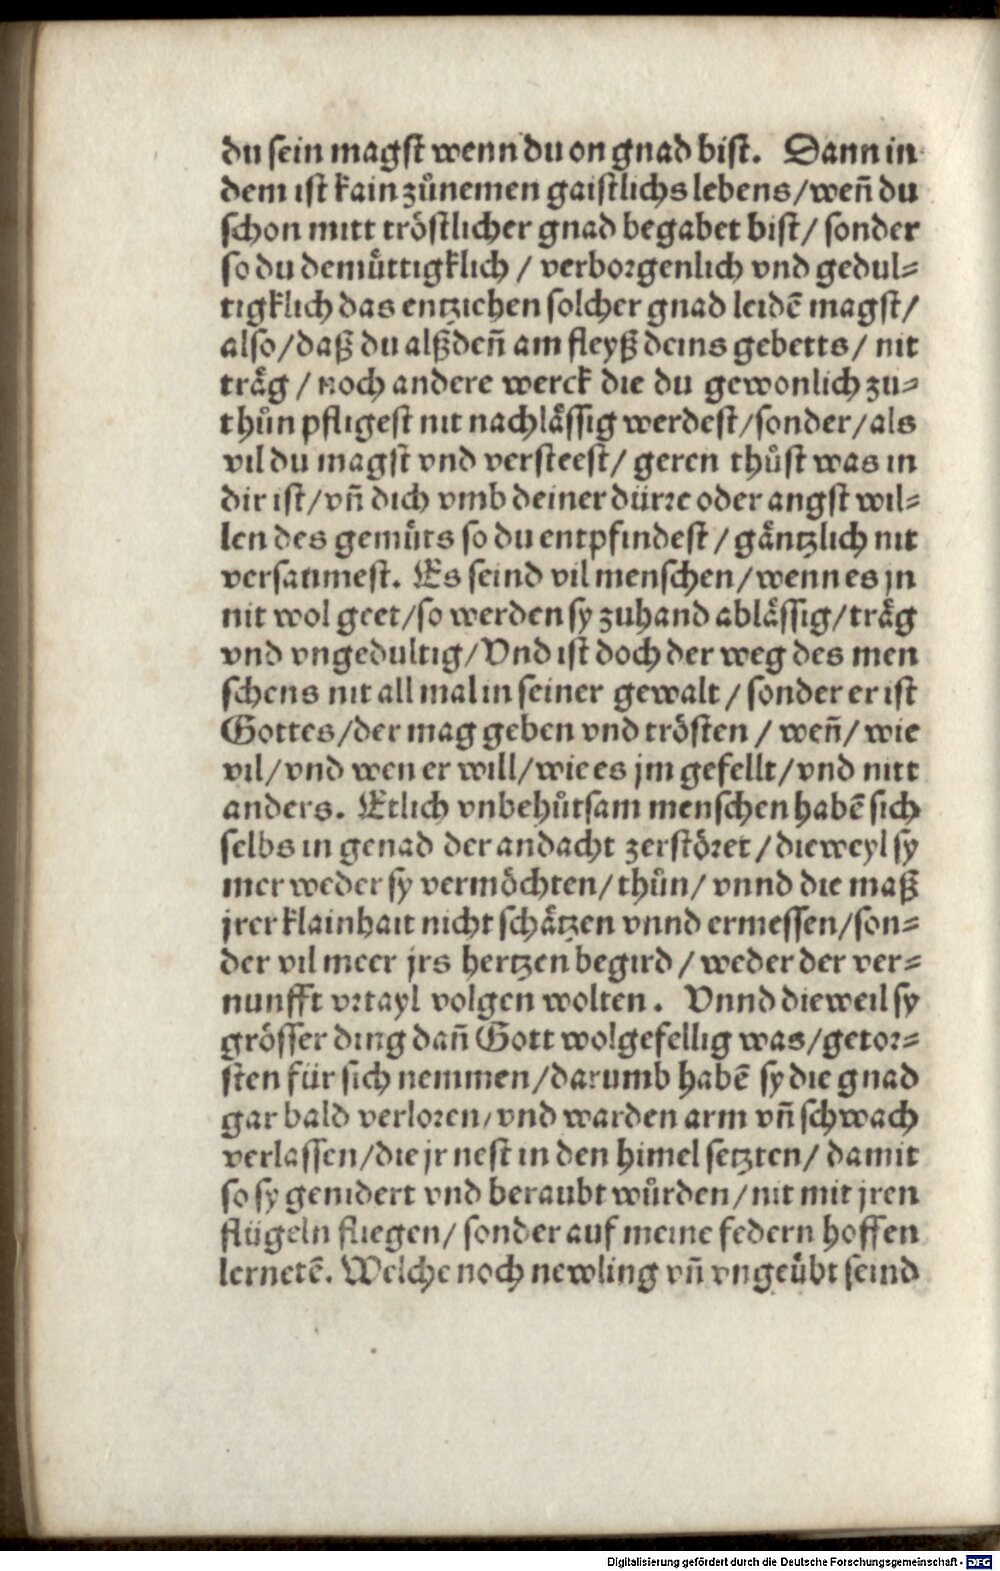 du sein magst wenn du on gnad bist. Dann in
dem ist kain zůnemen gaistlichs lebens/wen̄ du
schon mitt tröstlicher gnad begabet bist/ sonder
so du demüttigklich / verborgenlich vnd gedul⸗
tigklich das entziehen solcher gnad leidē magst/
also/daß du alßden̄ am fleyß deins gebetts/ nit
träg / noch andere werck die du gewonlich zu⸗
thůn pfligest nit nachlässig werdest/sonder/als
vil du magst vnd versteest/ geren thůst was in
dir ist/vn̄ dich vmb deiner dürre oder angst wil⸗
len des gemüts so du entpfindest / gäntzlich nit
versaumest. Es seind vil menschen/wenn es jn
nit wol geet/so werden sy zuhand ablässig/träg
vnd vngedultig/Vnd ist doch der weg des men
schens nit all mal in seiner gewalt / sonder er ist
Gottes/der mag geben vnd trösten / wen̄/ wie
vil/vnd wen er will/wie es jm gefellt/vnd nitt
anders. Etlich vnbehůtsam menschen habē sich
selbs in genad der andacht zerstöret / dieweyl sy
mer weder sy vermöchten/ thůn/ vnnd die maß
jrer klainhait nicht schätzen vnnd ermessen/son⸗
der vil meer jrs hertzen begird / weder der ver⸗
nunfft vrtayl volgen wolten. Vnnd dieweil sy
grösser ding dan̄ Gott wolgefellig was/getor⸗
sten für sich nemmen/darumb habē sy die gnad
gar bald verloren/vnd warden arm vn̄ schwach
verlassen/die jr nest in den himel setzten/ damit
so sy genidert vnd beraubt würden/nit mit jren
flügeln fliegen/ sonder auf meine federn hoffen
lernetē. Welche noch newling vn̄ vngeübt seind
Digitalisierung gefördert durch die Deutsche Forschungsgemeinschaft - DFG